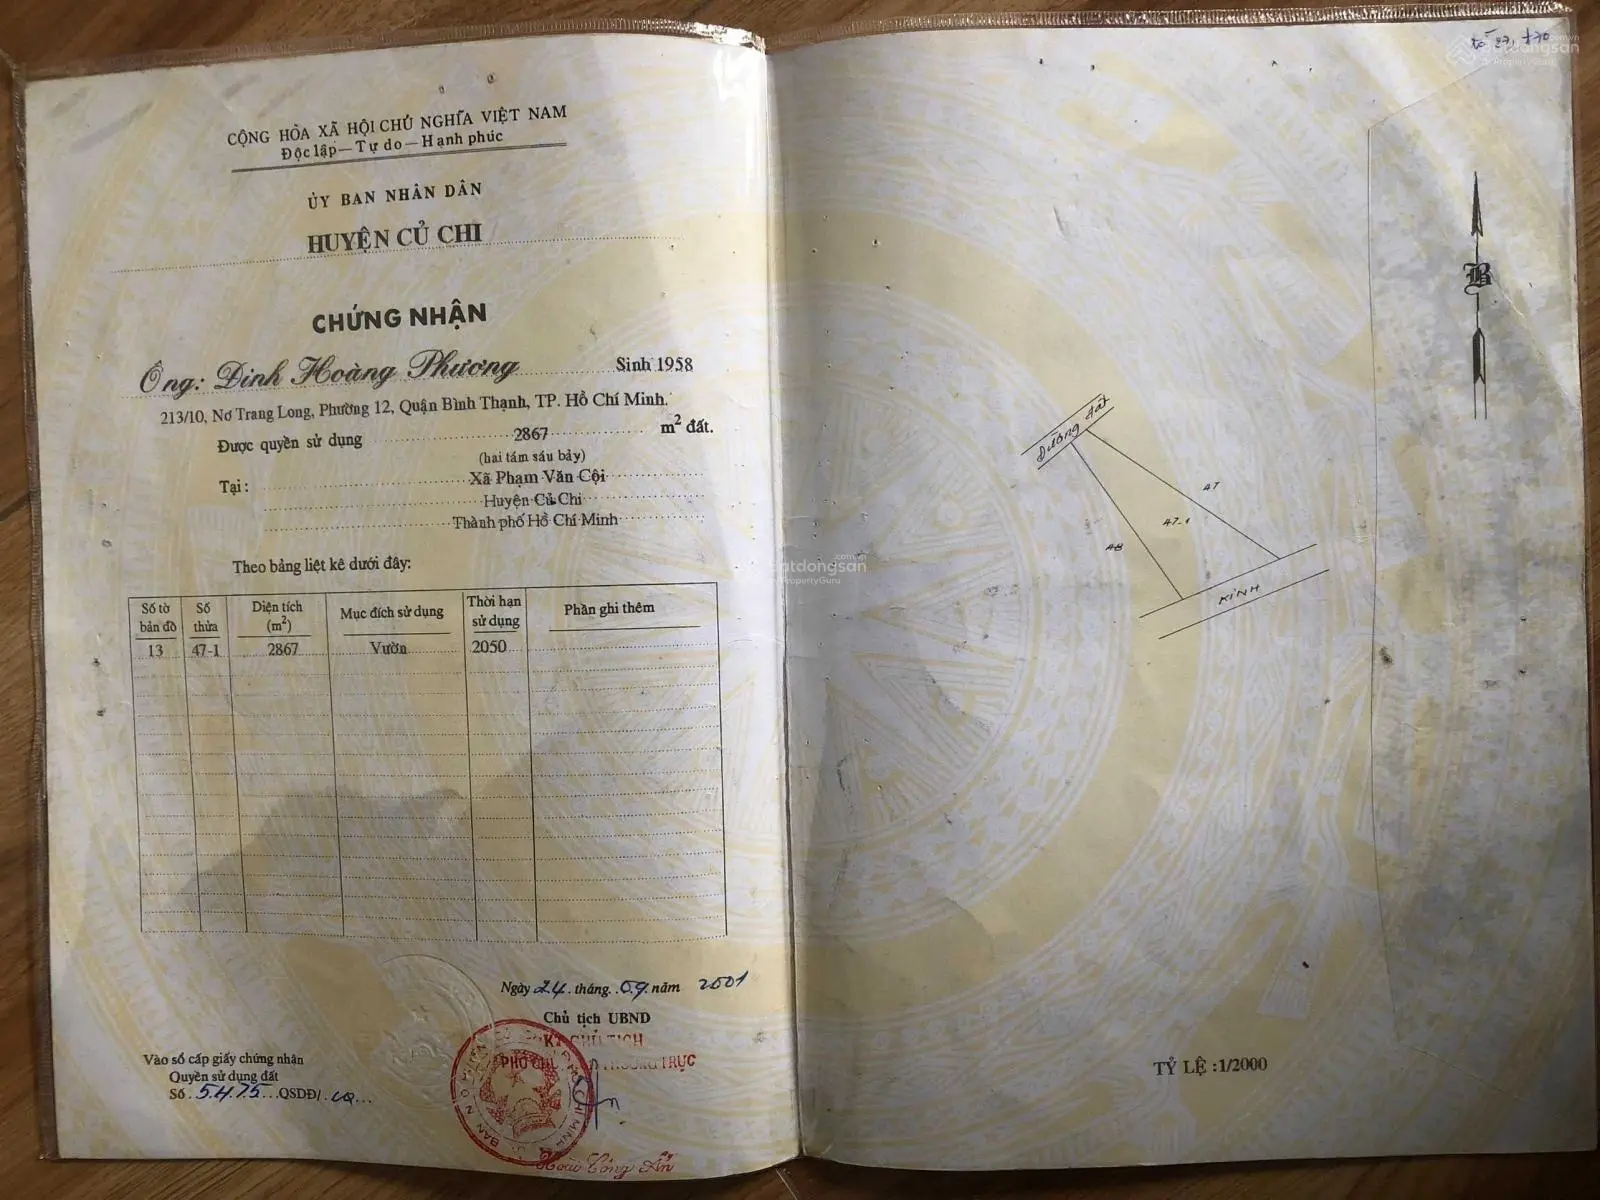 CỘNG HÒA XÃ HỘI CHỦ NGHĨA VIỆT NAM
Độc lập — Tự do — Hạnh phúc
ỦY BAN NHÂN DÂN
HUYỆN CỦ CHI
CHỨNG NHẬN
Ông: Đinh Hoàng Phương Sinh 1958
213/10, Nơ Trang Long, Phường 12, Quận Bình Thạnh, TP. Hồ Chí Minh.
Được quyền sử dụng 2867 m² đất.
(hai tám sáu bảy)
Tại: Xã Phạm Văn Cội
Huyện Củ Chi
Thành phố Hồ Chí Minh
Theo bảng liệt kê dưới đây:
Số tờ bản đồ Số thửa Diện tích (m²) Mục đích sử dụng Thời hạn sử dụng Phần ghi thêm
13 47-1 2867 Vườn 2050
Ngày 24 tháng 09 năm 2001
Chủ tịch UBND
KT CHỦ TỊCH
THƯỜNG TRỰC
Vào sổ cấp giấy chứng nhận
Quyền sử dụng đất
Số 5475 QSDĐ/
Hoàu Công Ẩn
tờ 27, t70
batdongsan.com.vn
by PropertyGuru
B
Đường đất
47
47-1
48
KINH
batdongsan.com.vn
by PropertyGuru
TỶ LỆ :1/2000